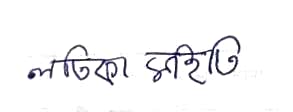 লতিকা মাহিতি